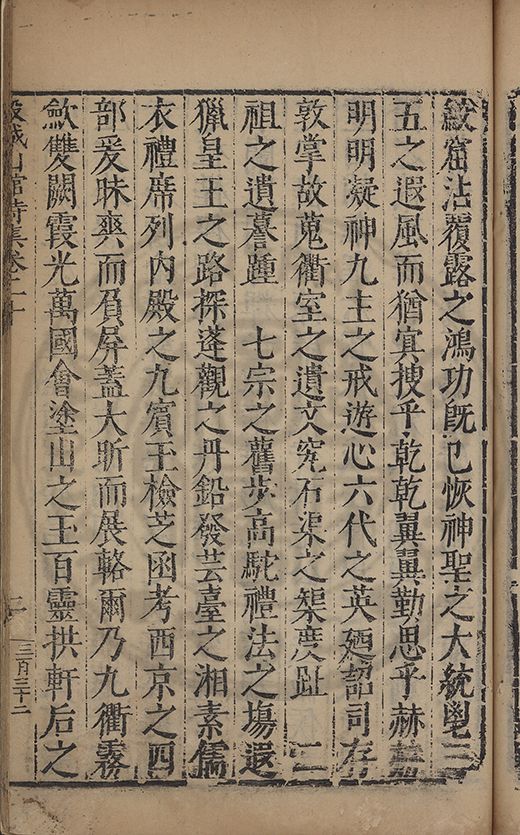 紘窟沾覆露之鴻功旣已恢神聖之大統鬯三
五之遐風而猶㝠搜乎乾乾翼翼勤思乎赫赫
明明凝神九主之戒遊心六代之英廼詔司存
敦掌故蒐衢室之遺文究石渠之榘度趾　二
祖之遺謩踵　七宗之舊步高駝禮法之塲遐
獵皇王之路探蓬觀之丹鉛發芸臺之湘素儒
衣禮席列內殿之九賓玉檢芝函考西京之四
部爰昧爽而負扆蓋大昕而展輅爾乃九衢霧
歛雙闕霞光萬國會塗山之玉百靈拱軒后之
城山館詩集卷二十　三百三十二